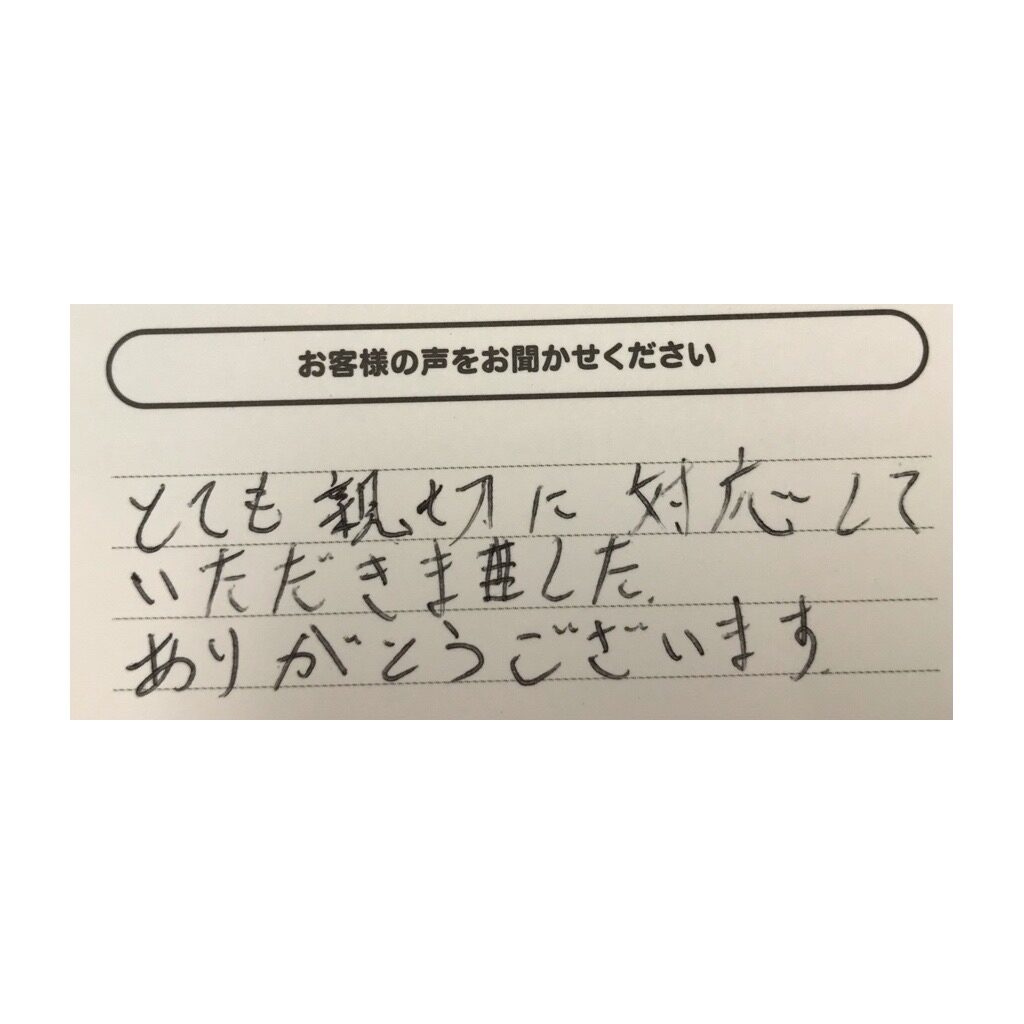 お客様の声をお聞かせください
とても親切に対応して
いただきました.
ありがとうございます.